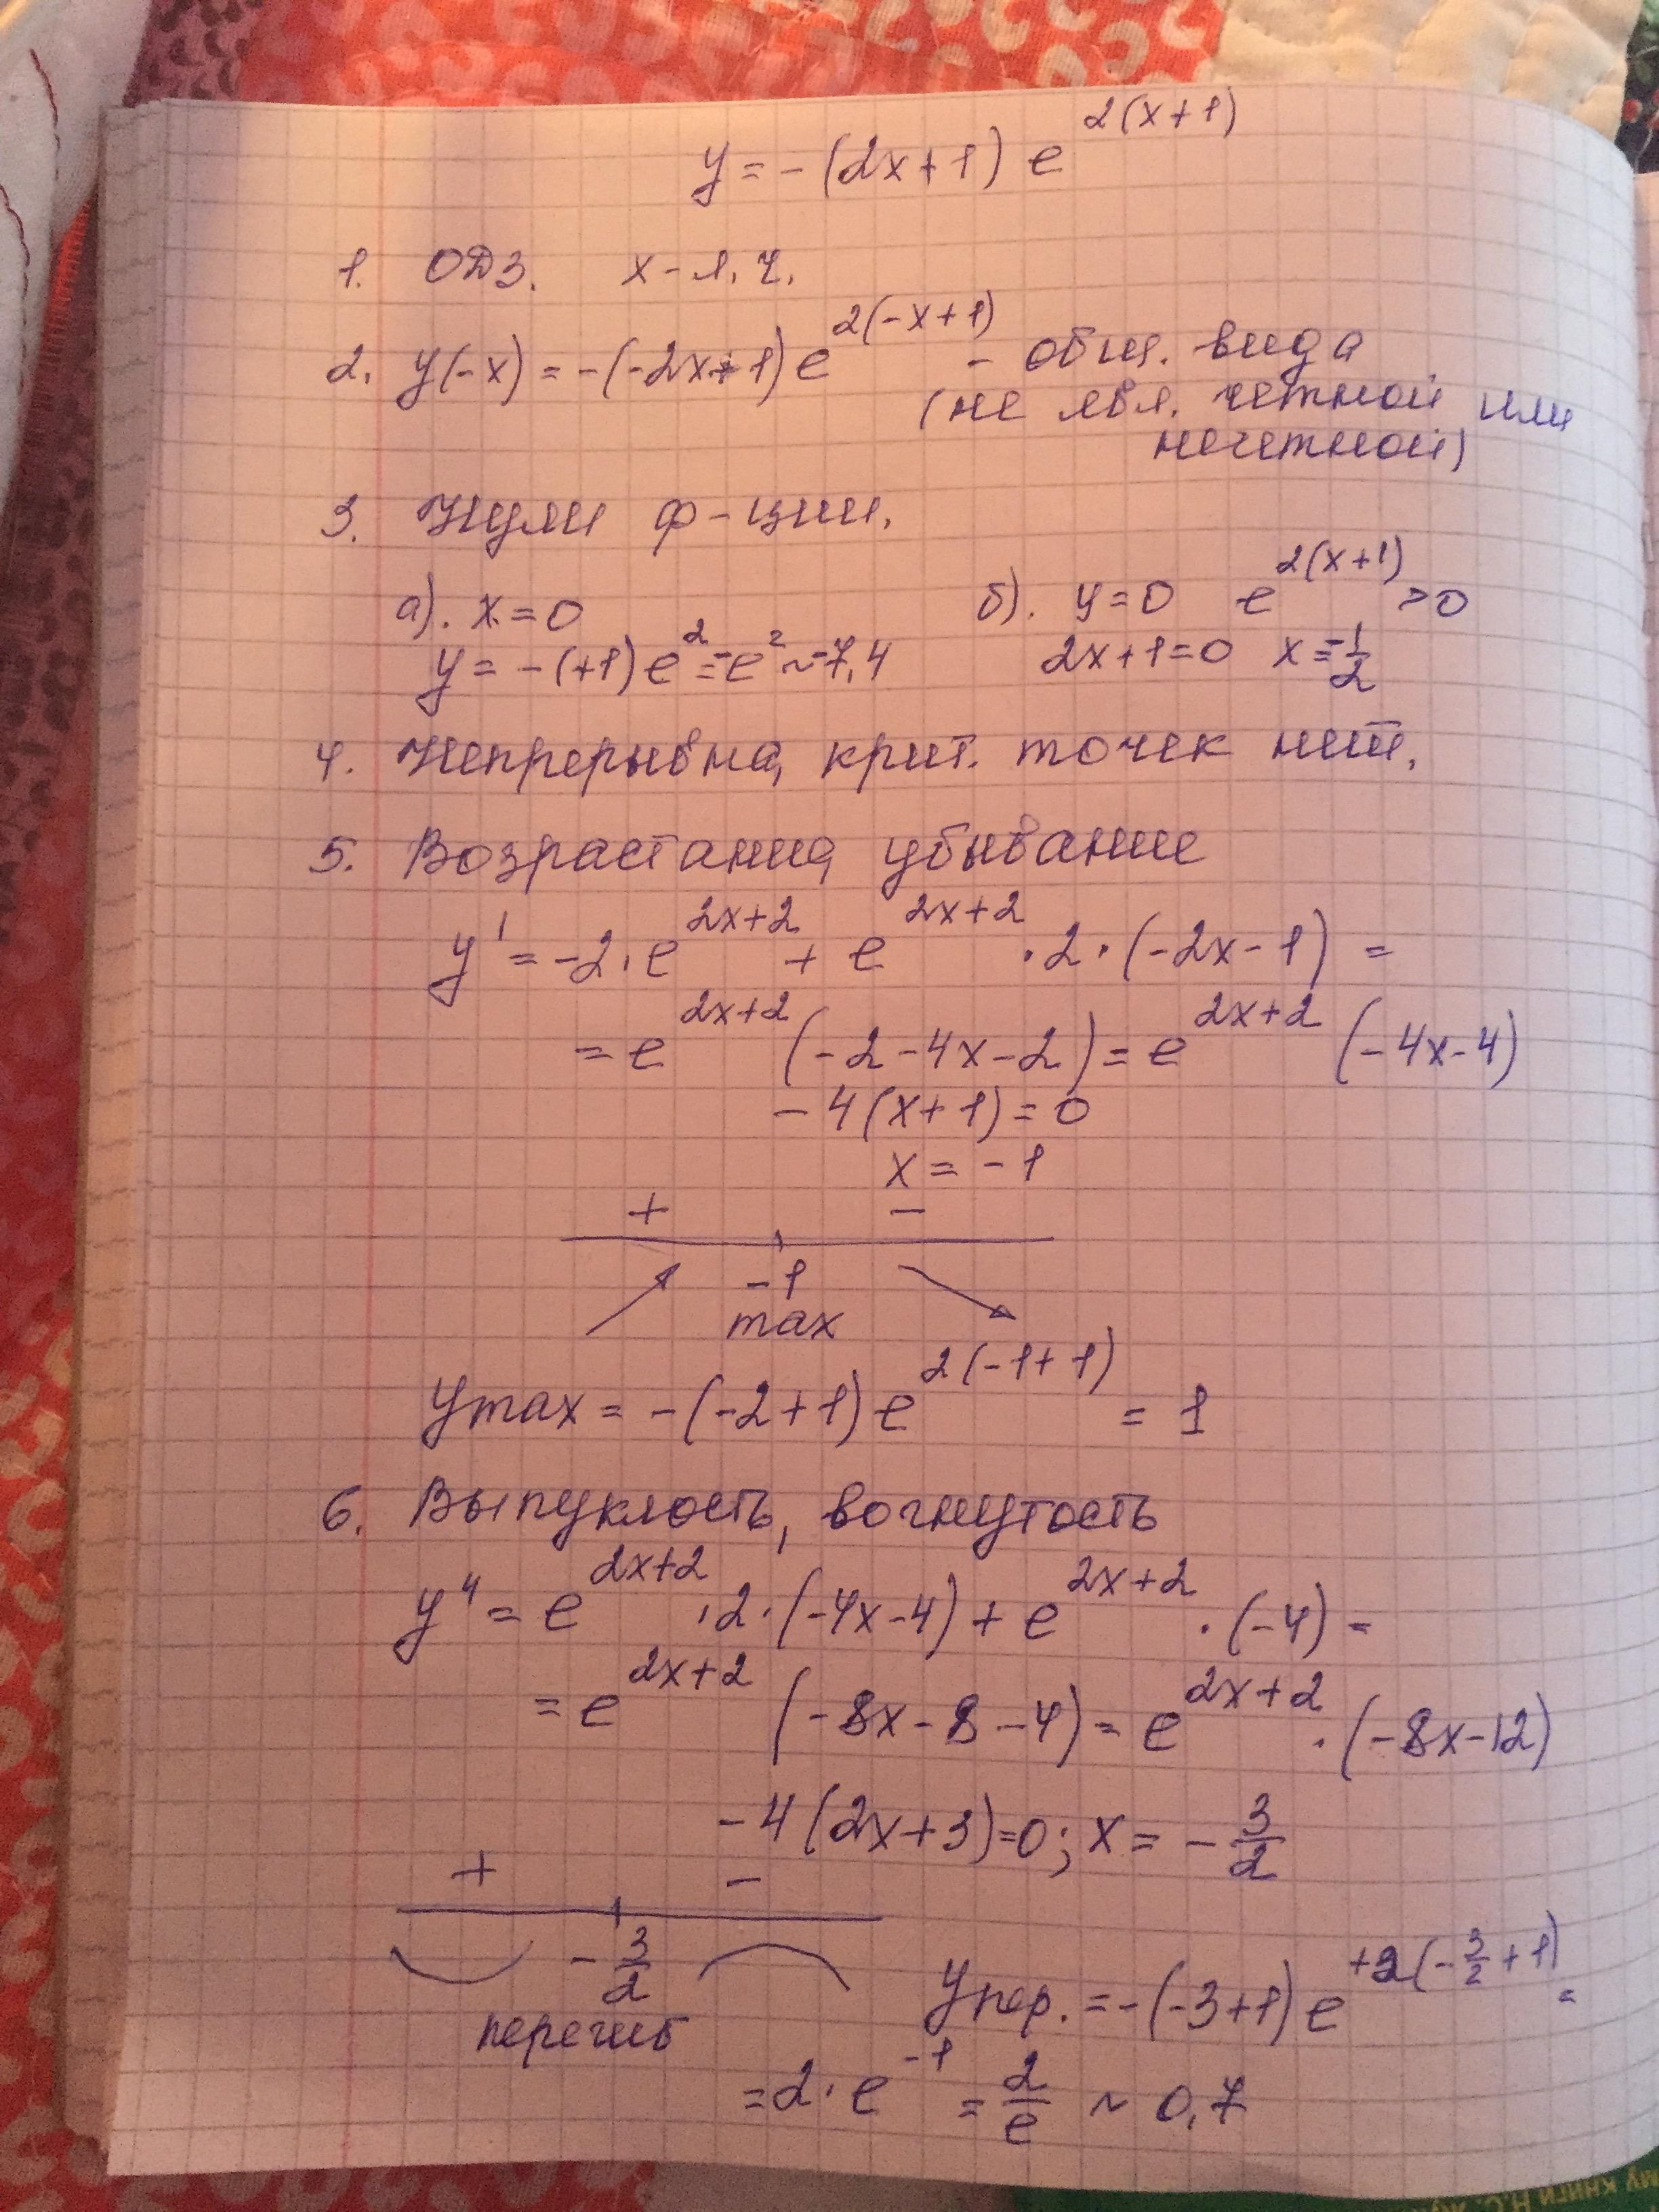 y = -(2x+1) e^{2(x+1)}
1. ОДЗ. x - л. ч.
2. y(-x) = -(-2x+1) e^{2(-x+1)} - общ. вида
(не явл. четной или
нечетной)
3. Нули ф-ции.
а). x = 0 б). y = 0 e^{2(x+1)} > 0
y = -(+1) e^2 = -e^2 ~ -7,4 2x+1=0 x = -1/2
4. Непрерывна, крит. точек нет.
5. Возрастание, убывание
y' = -2 · e^{2x+2} + e^{2x+2} · 2 · (-2x-1) =
= e^{2x+2} (-2-4x-2) = e^{2x+2} (-4x-4)
-4(x+1) = 0
x = -1
+ -
-1
max
y max = -(-2+1) e^{2(-1+1)} = 1
6. Выпуклость, вогнутость
y'' = e^{2x+2} · 2 · (-4x-4) + e^{2x+2} · (-4) =
= e^{2x+2} (-8x-8-4) = e^{2x+2} · (-8x-12)
-4(2x+3)=0; x = -3/2
+ -
-3/2
перегиб
y пер. = -(-3+1) e^{+2(-3/2+1)} =
= 2 · e^{-1} = 2/e ~ 0,7